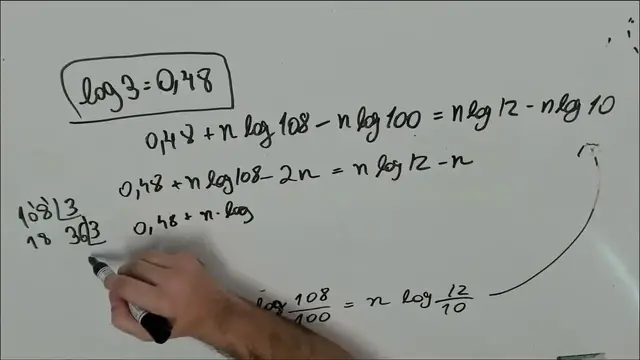 log 3 = 0,48
0,48 + n log 108 - n log 100 = n log 12 - n log 10
0,48 + n log 108 - 2n = n log 12 - n
108 3
18 36 3
0,48 + n · log
log 108/100 = n log 12/10